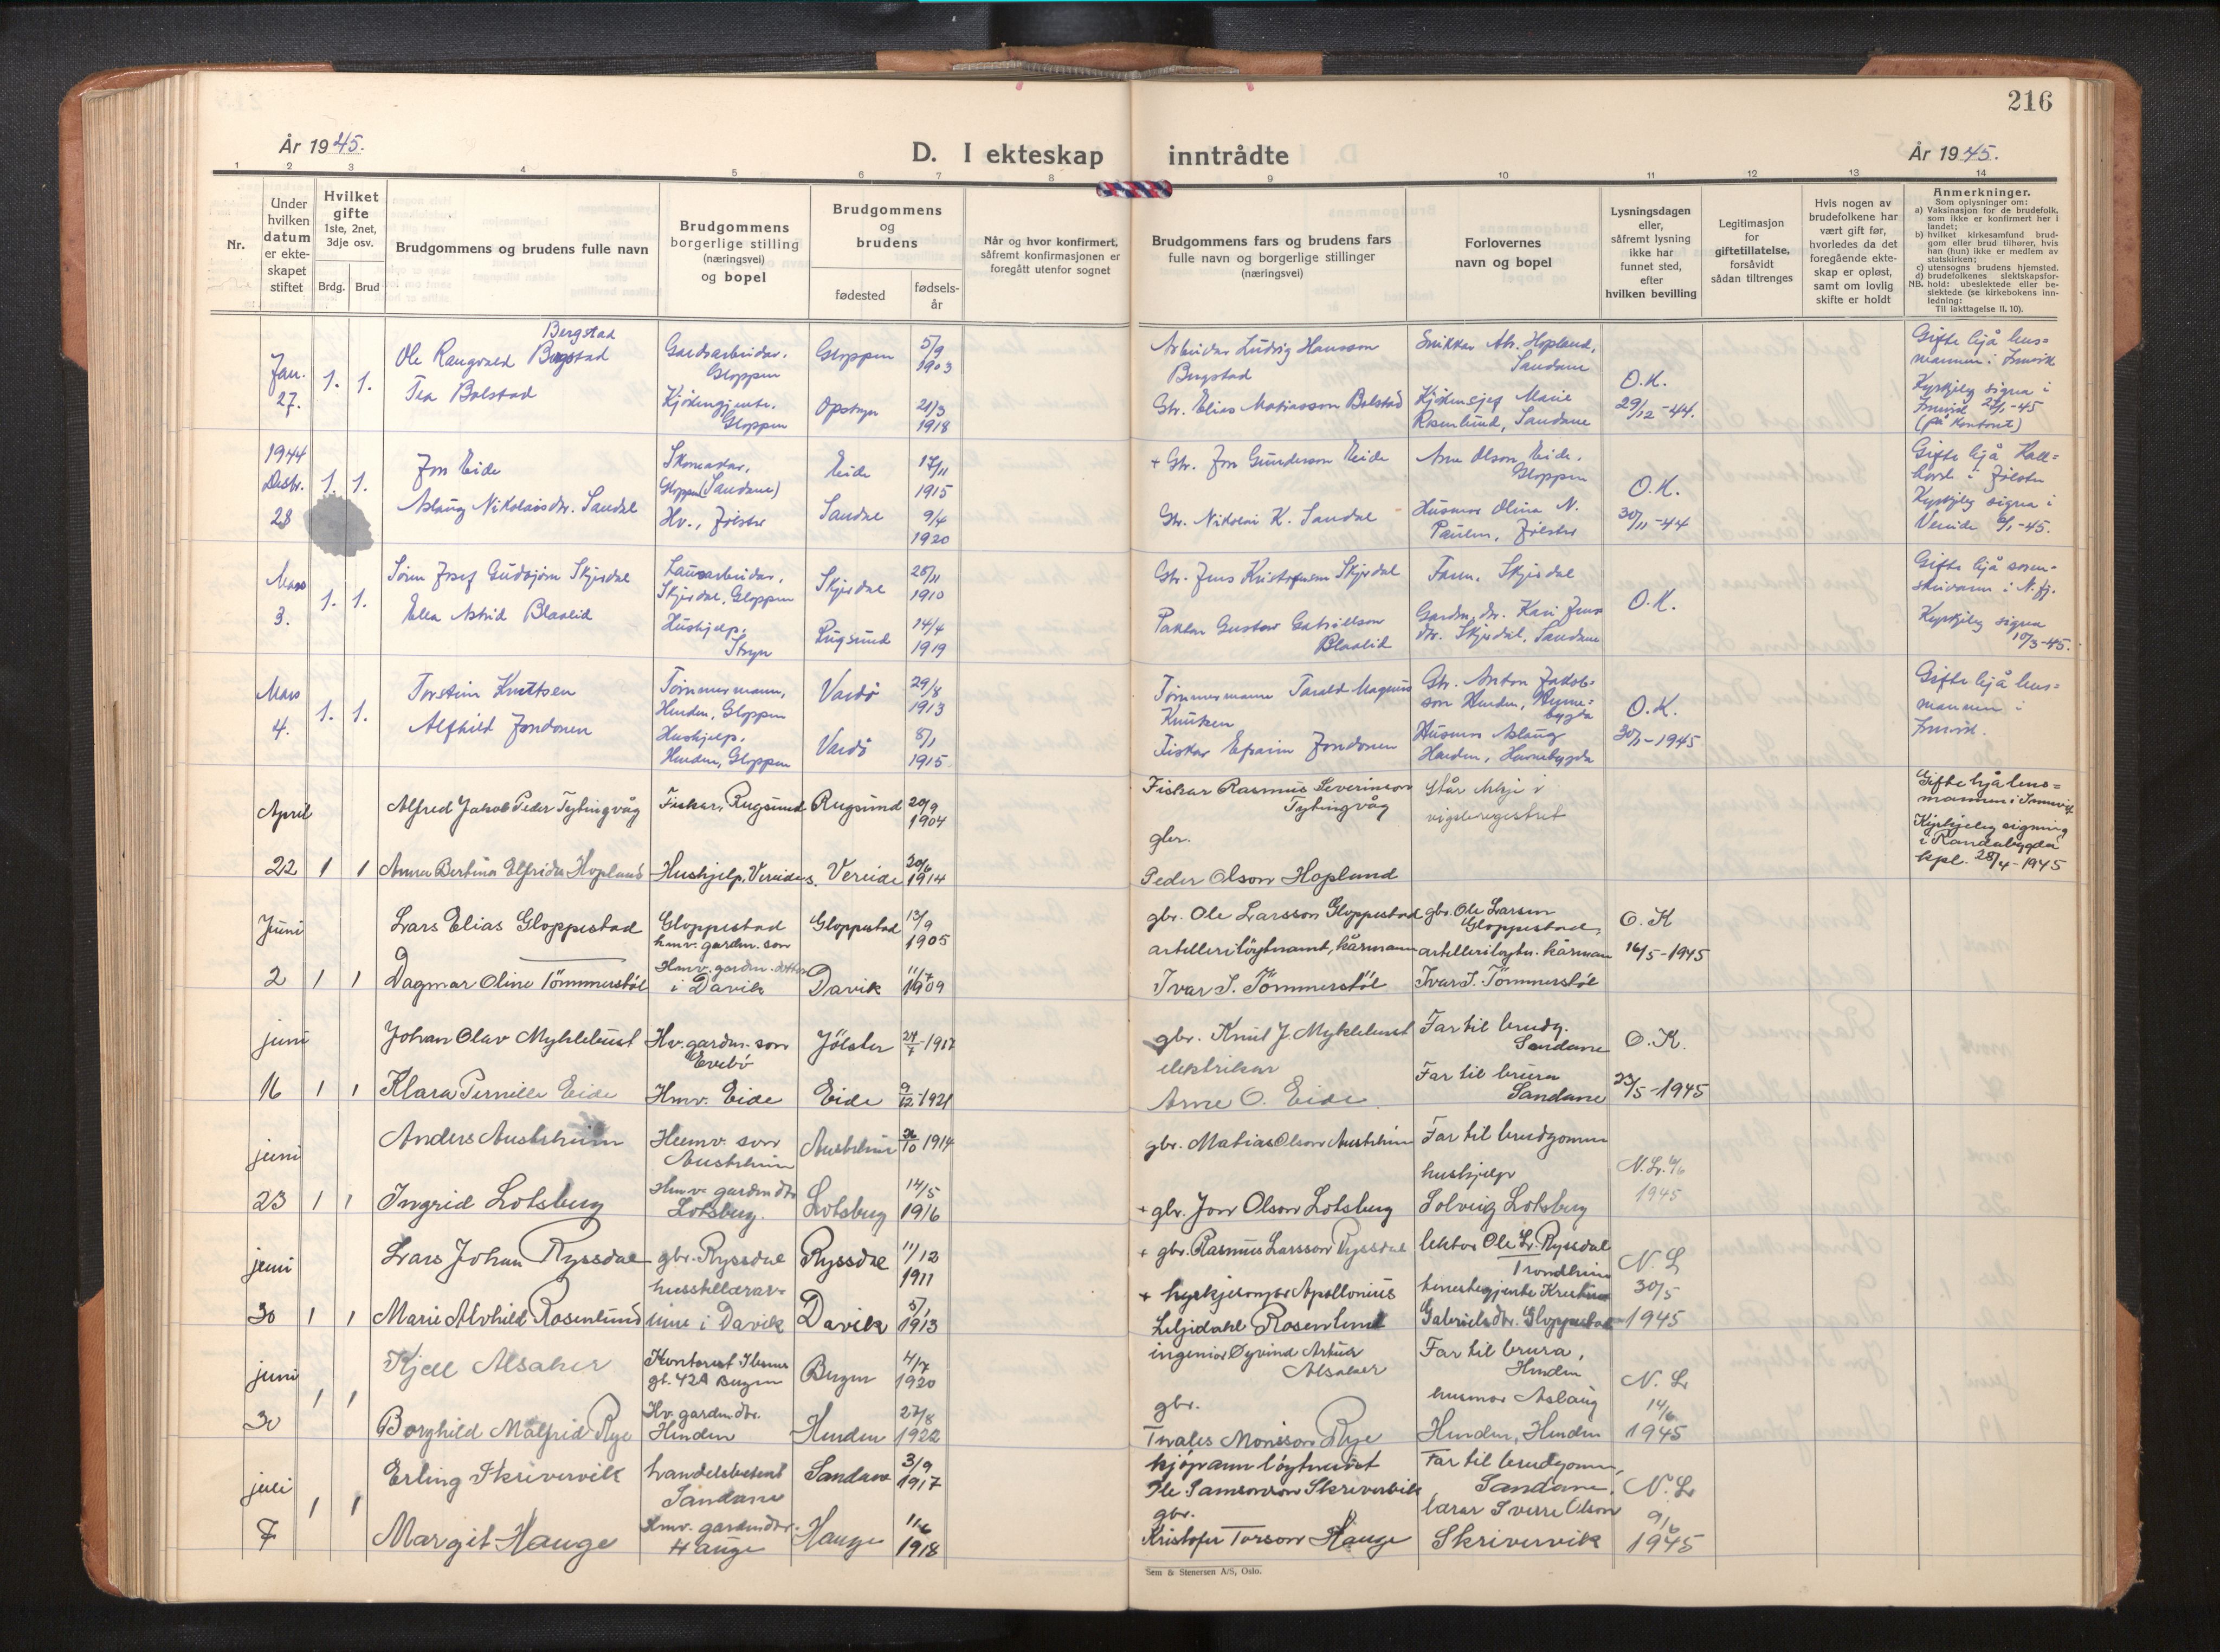 216
År 1945.
D. I ekteskap inntrådte
År 1945.
1 2 3 4 5 6 7 8 9 10 11 12 13 14
Nr.
Under hvilken datum er ekteskapet stiftet
Hvilket gifte 1ste, 2net, 3dje osv.
Brdg. Brud
Brudgommens og brudens fulle navn
Brudgommens borgerlige stilling (næringsvei) og bopel
Brudgommens og brudens
fødested
fødselsår
Når og hvor konfirmert, såfremt konfirmasjonen er foregått utenfor sognet
Brudgommens fars og brudens fars fulle navn og borgerlige stillinger (næringsvei)
Forlovernes navn og bopel
Lysningsdagen eller, såfremt lysning ikke har funnet sted, efter hvilken bevilling
Legitimasjon for giftetillatelse, forsåvidt sådan tiltrenges
Hvis nogen av brudefolkene har vært gift før, hvorledes da det foregående ekteskap er opløst, samt om lovlig skifte er holdt
Anmerkninger.
Som oplysninger om:
a) Vaksinasjon for de brudefolk, som ikke er konfirmert her i landet;
b) hvilket kirkesamfund brudgom eller brud tilhører, hvis han (hun) ikke er medlem av statskirken;
c) utensogns brudens hjemsted.
d) brudefolkenes slektskapsforhold: ubeslektede eller beslektede (se kirkebokens innledning:
NB.
Til iakttagelse II. 10).
Jan. 27. 1. 1.
Bergstad
Ole Rangvald Bergstad
Gardsarbeidar. Gloppen
Gloppen 5/9 1903
Arbeidar Ludvig Hansson Bergstad
Snikkar Ab. Hopland, Sandane
Tea Bolstad
Kjøkengjente. Gloppen
Opstryn 21/3 1918
Gbr. Elias Matiasson Bolstad
Kjøkensjef Marie Rosenlund, Sandane
O.K. 29/12-44.
Gifte hjå lensmannen i Innvik
Kyrkjeleg signa i Innvik 27/1-45 (på kontoret)
1944 Desbr. 28 1. 1.
Jon Eide
Skomakar, Gloppen (Sandane)
Eide 17/11 1915
+ Gbr. Jon Gunderson Eide
Arne Olson Eide. Gloppen
Aslaug Nikolaisdtr. Sandal
Hv., Jølster
Sandal 9/4 1920
Gbr. Nikolai K. Sandal
Husmor Olina N. Paulen, Jølster
O.K. 30/11-44
Gifte hjå
i Jølster
Kyrkjeleg signa i Vereide 6/1-45.
Mars 3. 1. 1.
Søren Josef Gudbjørn Skjerdal
Lausarbeidar, Skjerdal, Gloppen
Skjerdal 28/11 1910
Gbr. Jens Kristofferson Skjerdal
Faren, Skjerdal
Ella Astrid Blaalid
Hushjelp, Stryn
Rugsund 14/4 1919
Paktar Gustav Gabrielson Blaalid
Gardm. dtr. Kari Jensdtr. Skjerdal, Sandane
O.K.
Gifte hjå sorenskrivaren i N. fj.
Kyrkjeleg signa 10/3-45.
Mars 4. 1. 1.
Torstein Knutsen
Tømmermann, Henden, Gloppen
Vardø 29/8 1913
Tømmermann Tarald Magnus Knutsen
Gbr. Anton Jakobson Henden, Hyenebygda
Alfhild Jondonen
Hushjelp, Henden, Gloppen
Vardø 8/1 1915
Fiskar Efraim Jondonen
Husmor Aslaug Henden, Hennebygda
O.K. 30/1-1945
Gifte hjå lensmannen i Innvik.
April 22 1 1
Alfred Jakob Peder Tytingvåg
Fiskar, Rugsund
Rugsund 20/9 1904
Fiskar Rasmus Severinson Tytingvåg
Står ikkje i vigsleregistret
Anna Bertina Elfrida Hopland
Hushjelp, Vereide s.
Vereide 30/6 1914
gbr. Peder Olson Hopland
Gifte hjå lensmannen i Innvik
Kyrkjeleg signing i Randabygda kpl. 28/4-1945
Juni 2 1 1
Lars Elias Gloppestad
Gloppestad hmv. gardm. son
Gloppestad 13/9 1905
gbr. Ole Larsson Gloppestad
gbr. Ole Larsen Gloppestad,
Dagmar Oline Tömmerstöl
Hmv. gardm. dotter i Davik
Davik 11/7 1909
artilleriløytnant, kårmann Ivar I. Tömmerstöl
artilleriløytn. kårmann Ivar I. Tömmerstöl
O. K 16/5-1945
juni 16 1 1
Johan Olav Myklebust
Hv. gardm. son Evebø
Jölster 24/7-1917
gbr. Knut J. Myklebust
Far til brudg. Sandane
Klara Pernille Eide
Hmv. Eide
Eide 9/12-1921
elektrikar Arne O. Eide
Far til brura Sandane
O. K. 23/5-1945
juni 23 1 1
Anders Austrheim
Heimv. son Austrheim
Austrheim 26/10 1914
gbr. Matias Olson Austrheim
Far til brudgomen
Ingrid Lotsberg
Hmv. gardm dtr Lotsberg.
Lotsberg 14/5 1916
+ gbr. Jon Olson Lotsberg
hushjelp Solveig Lotsberg
N. L. 6/6 1945
juni 30 1 1
Lars Johan Ryssdal
gbr. Ryssdal
Ryssdal 11/12 1911
+ gbr. Rasmus Larsson Ryssdal
lektor Ole L. Ryssdal Trondheim
Marie Alvhild Rosenlund
husstellærarinne i Davik
Davik 5/1 1913
+ kyrkjesongar Apollonius Liljedahl Rosenlund
tenestegjente Kristina Gabrielsdtr. Gloppestad
N. L 30/5 1945
juni 30 1 1
Kjell Alsaker
Kontorist Ibsens gt. 42A Bergen
Bergen 4/7 1920
ingeniør Øyvind Artur Alsaker
Far til brura, Henden
Borghild Målfrid Rye
Hv. gardm dtr. Henden
Henden 27/8 1922
gbr. Tvales Monsson Rye
husmor Aslaug Henden, Henden
N. L. 14/6 1945
juli 7 1 1
Erling Skrivervik
handelsbetent Sandane
Sandane 3/9 1917
kjøpmann løytnant Ole Samsonson Skrivervik
Far til brudgomen, Sandane,
Margit Hauge
Hmv. gardm dtr. Hauge
Hauge 11/6 1918
gbr. Kristofer Torson Hauge
lærar Sverre Olson Skrivervik
N. L. 9/6 1945
Sem & Stenersen A/S, Oslo.